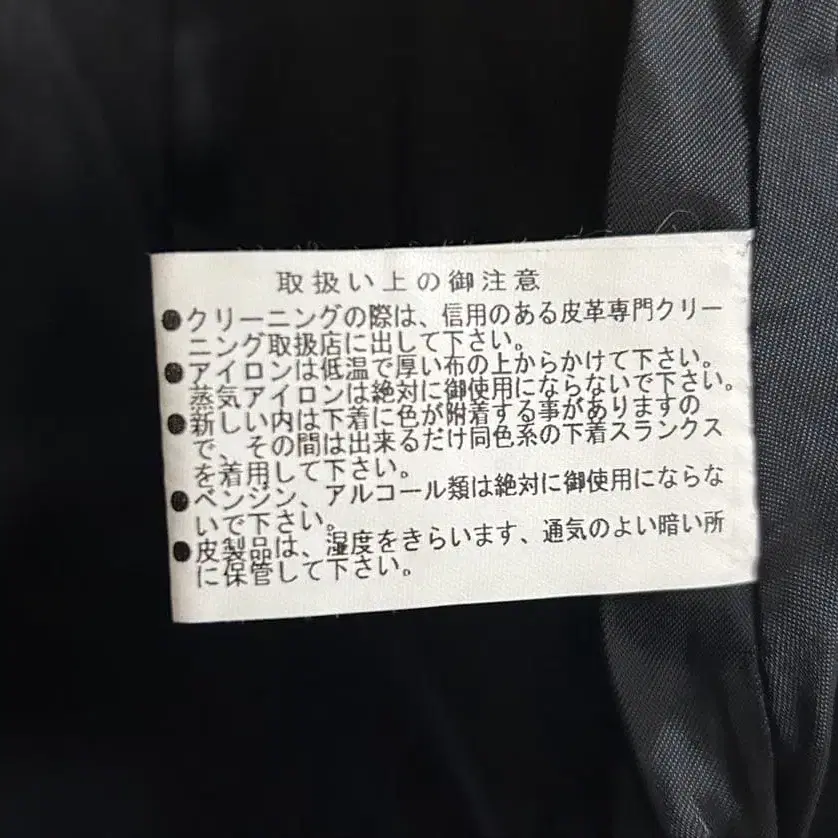 取扱い上の御注意
●クリーニングの際は、信用のある皮革専門クリー
ニング取扱店に出して下さい。
●アイロンは低温で厚い布の上からかけて下さい。
蒸気アイロンは絶対に御使用にならないで下さい。
●新しい内は下着に色が附着する事がありますの
で、その間は出来るだけ同色系の下着スランクス
を着用して下さい。
●ベンジン、アルコール類は絶対に御使用にならな
いで下さい。
●皮製品は、湿度をきらいます、通気のよい暗い所
に保管して下さい。